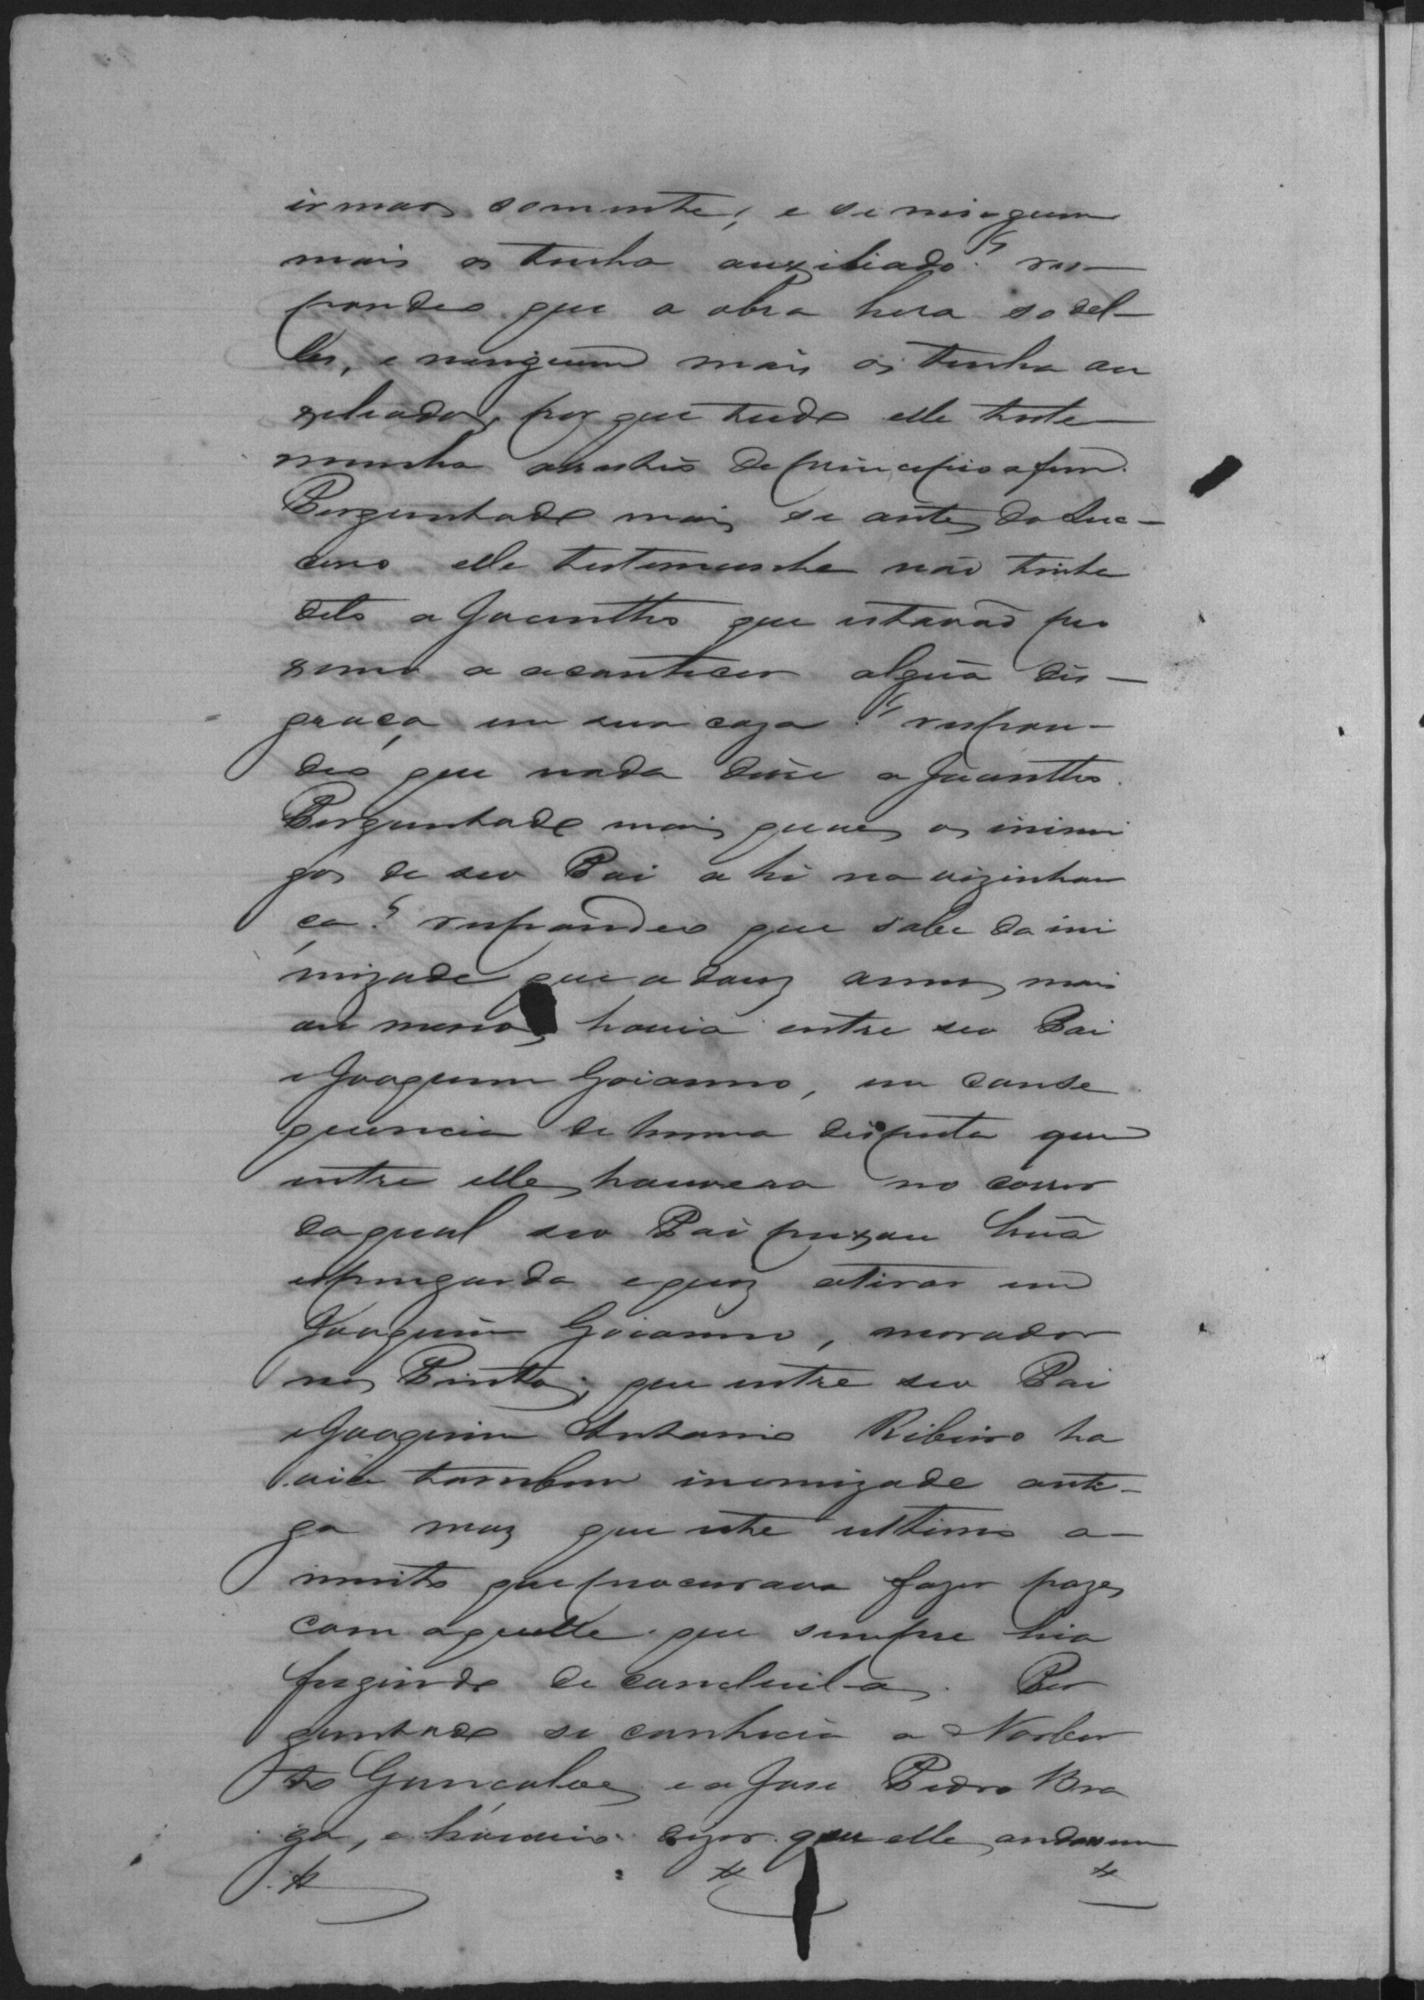 irmaos somente, e se ninguem
mais os tinha auxiliado? res-
pondeo que a obra hera só del-
les, e ninguem mais os tinha au
xiliados, por que tudo elle teste-
munha assistio de principio a fim.
Perguntado mais se antes do suc-
cesso elle testemunha não tinha
dito a Jacintho que estavão pro
ximo a acontecer algũa dis-
graça em sua caza? respon-
deo que nada disse a Jacintho.
Perguntado mais quaes os inimi
gos de seu Pai ahi na vizinhan
ça? respondeo que sabe da ini
mizade que a douz annos mais
ou menos havia entre seu Pai
e Joaquim Goianno, em conse
quencia de huma disputa que
entre elles houvera no correr
da qual seu Pai puxou hũa
espingarda e quiz atirar em
Joaquim Goianno, morador
nos Pintos; que entre seu Pai
e Joaquim Antonio Ribeiro ha
via tambem inemizade anti-
ga maz que este ultimo a
muito que procurava fazer pazes
com aquelle que sempre hia
fugindo de concluil-as. Per
guntado se conhecia a Norber
to Gonçalves e a Jose Pedro Bra
ga, e havia dizer que elles andavam